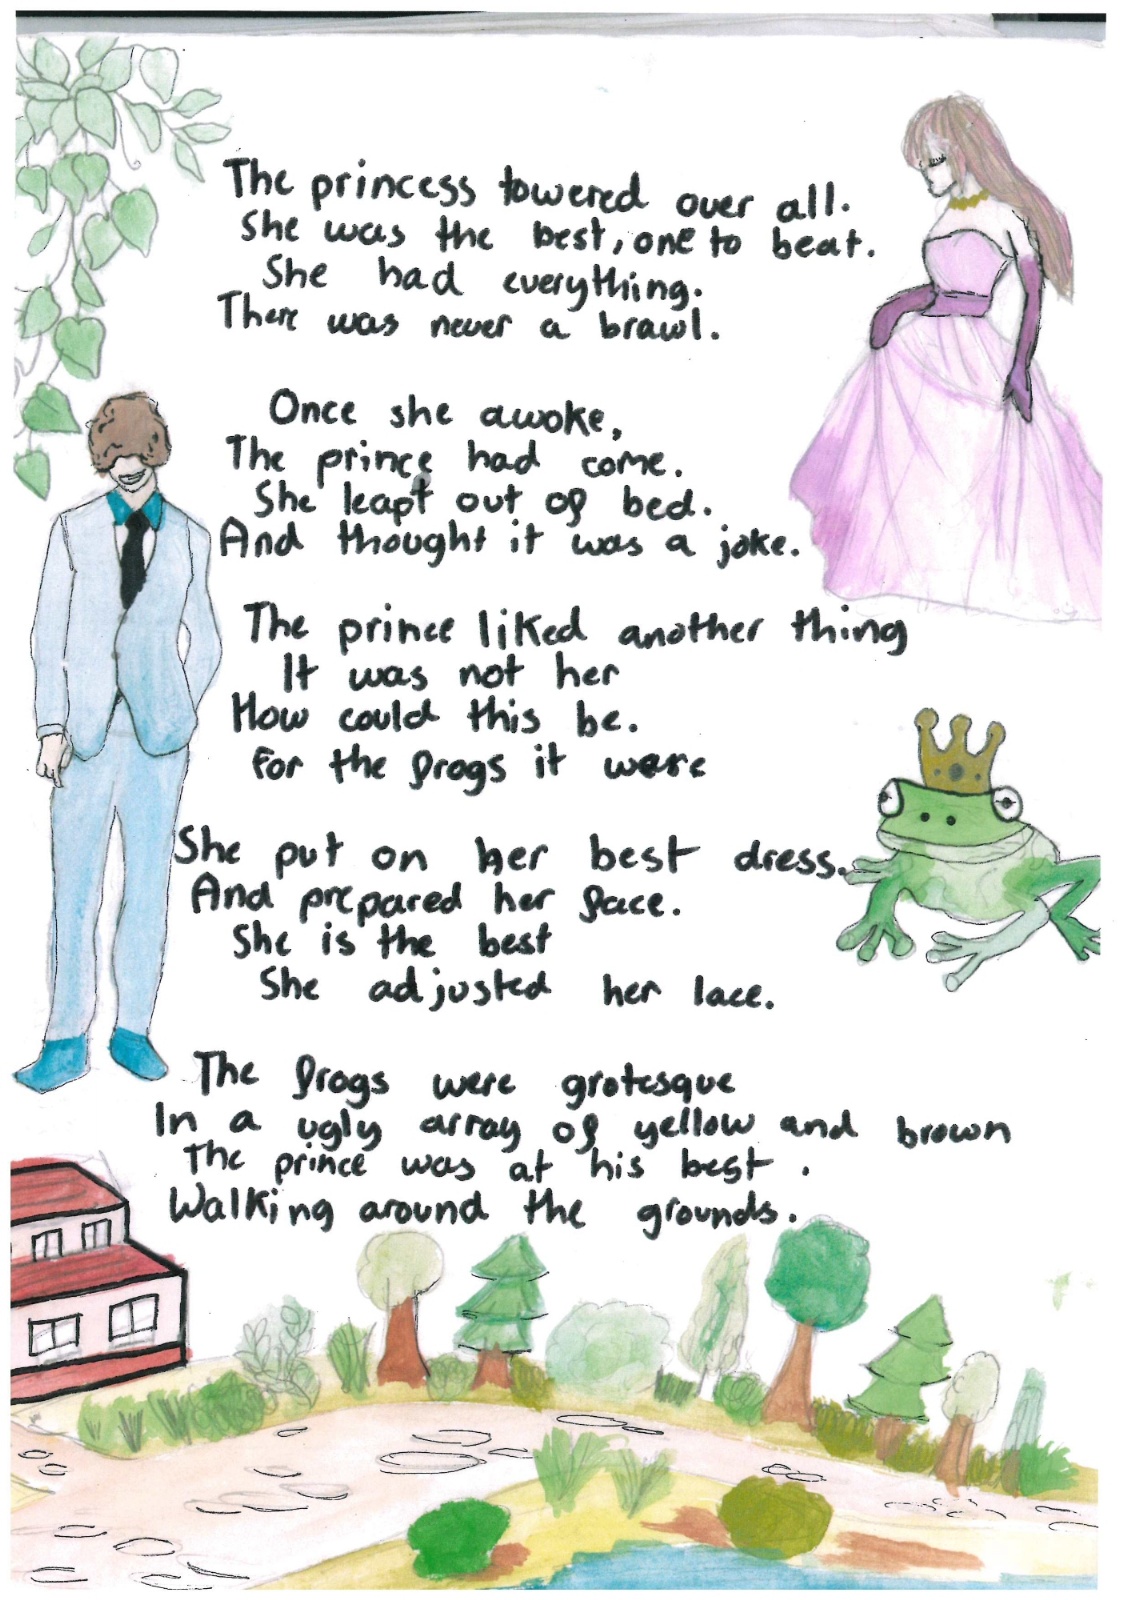 The princess towered over all.
She was the best, one to beat.
She had everything.
There was never a brawl.
Once she awoke,
The prince had come.
She leapt out of bed.
And thought it was a joke.
The prince liked another thing
It was not her
How could this be.
For the frogs it were
She put on her best dress.
And prepared her face.
She is the best
She adjusted her lace.
The frogs were grotesque
In a ugly array of yellow and brown
The prince was at his best.
Walking around the grounds.